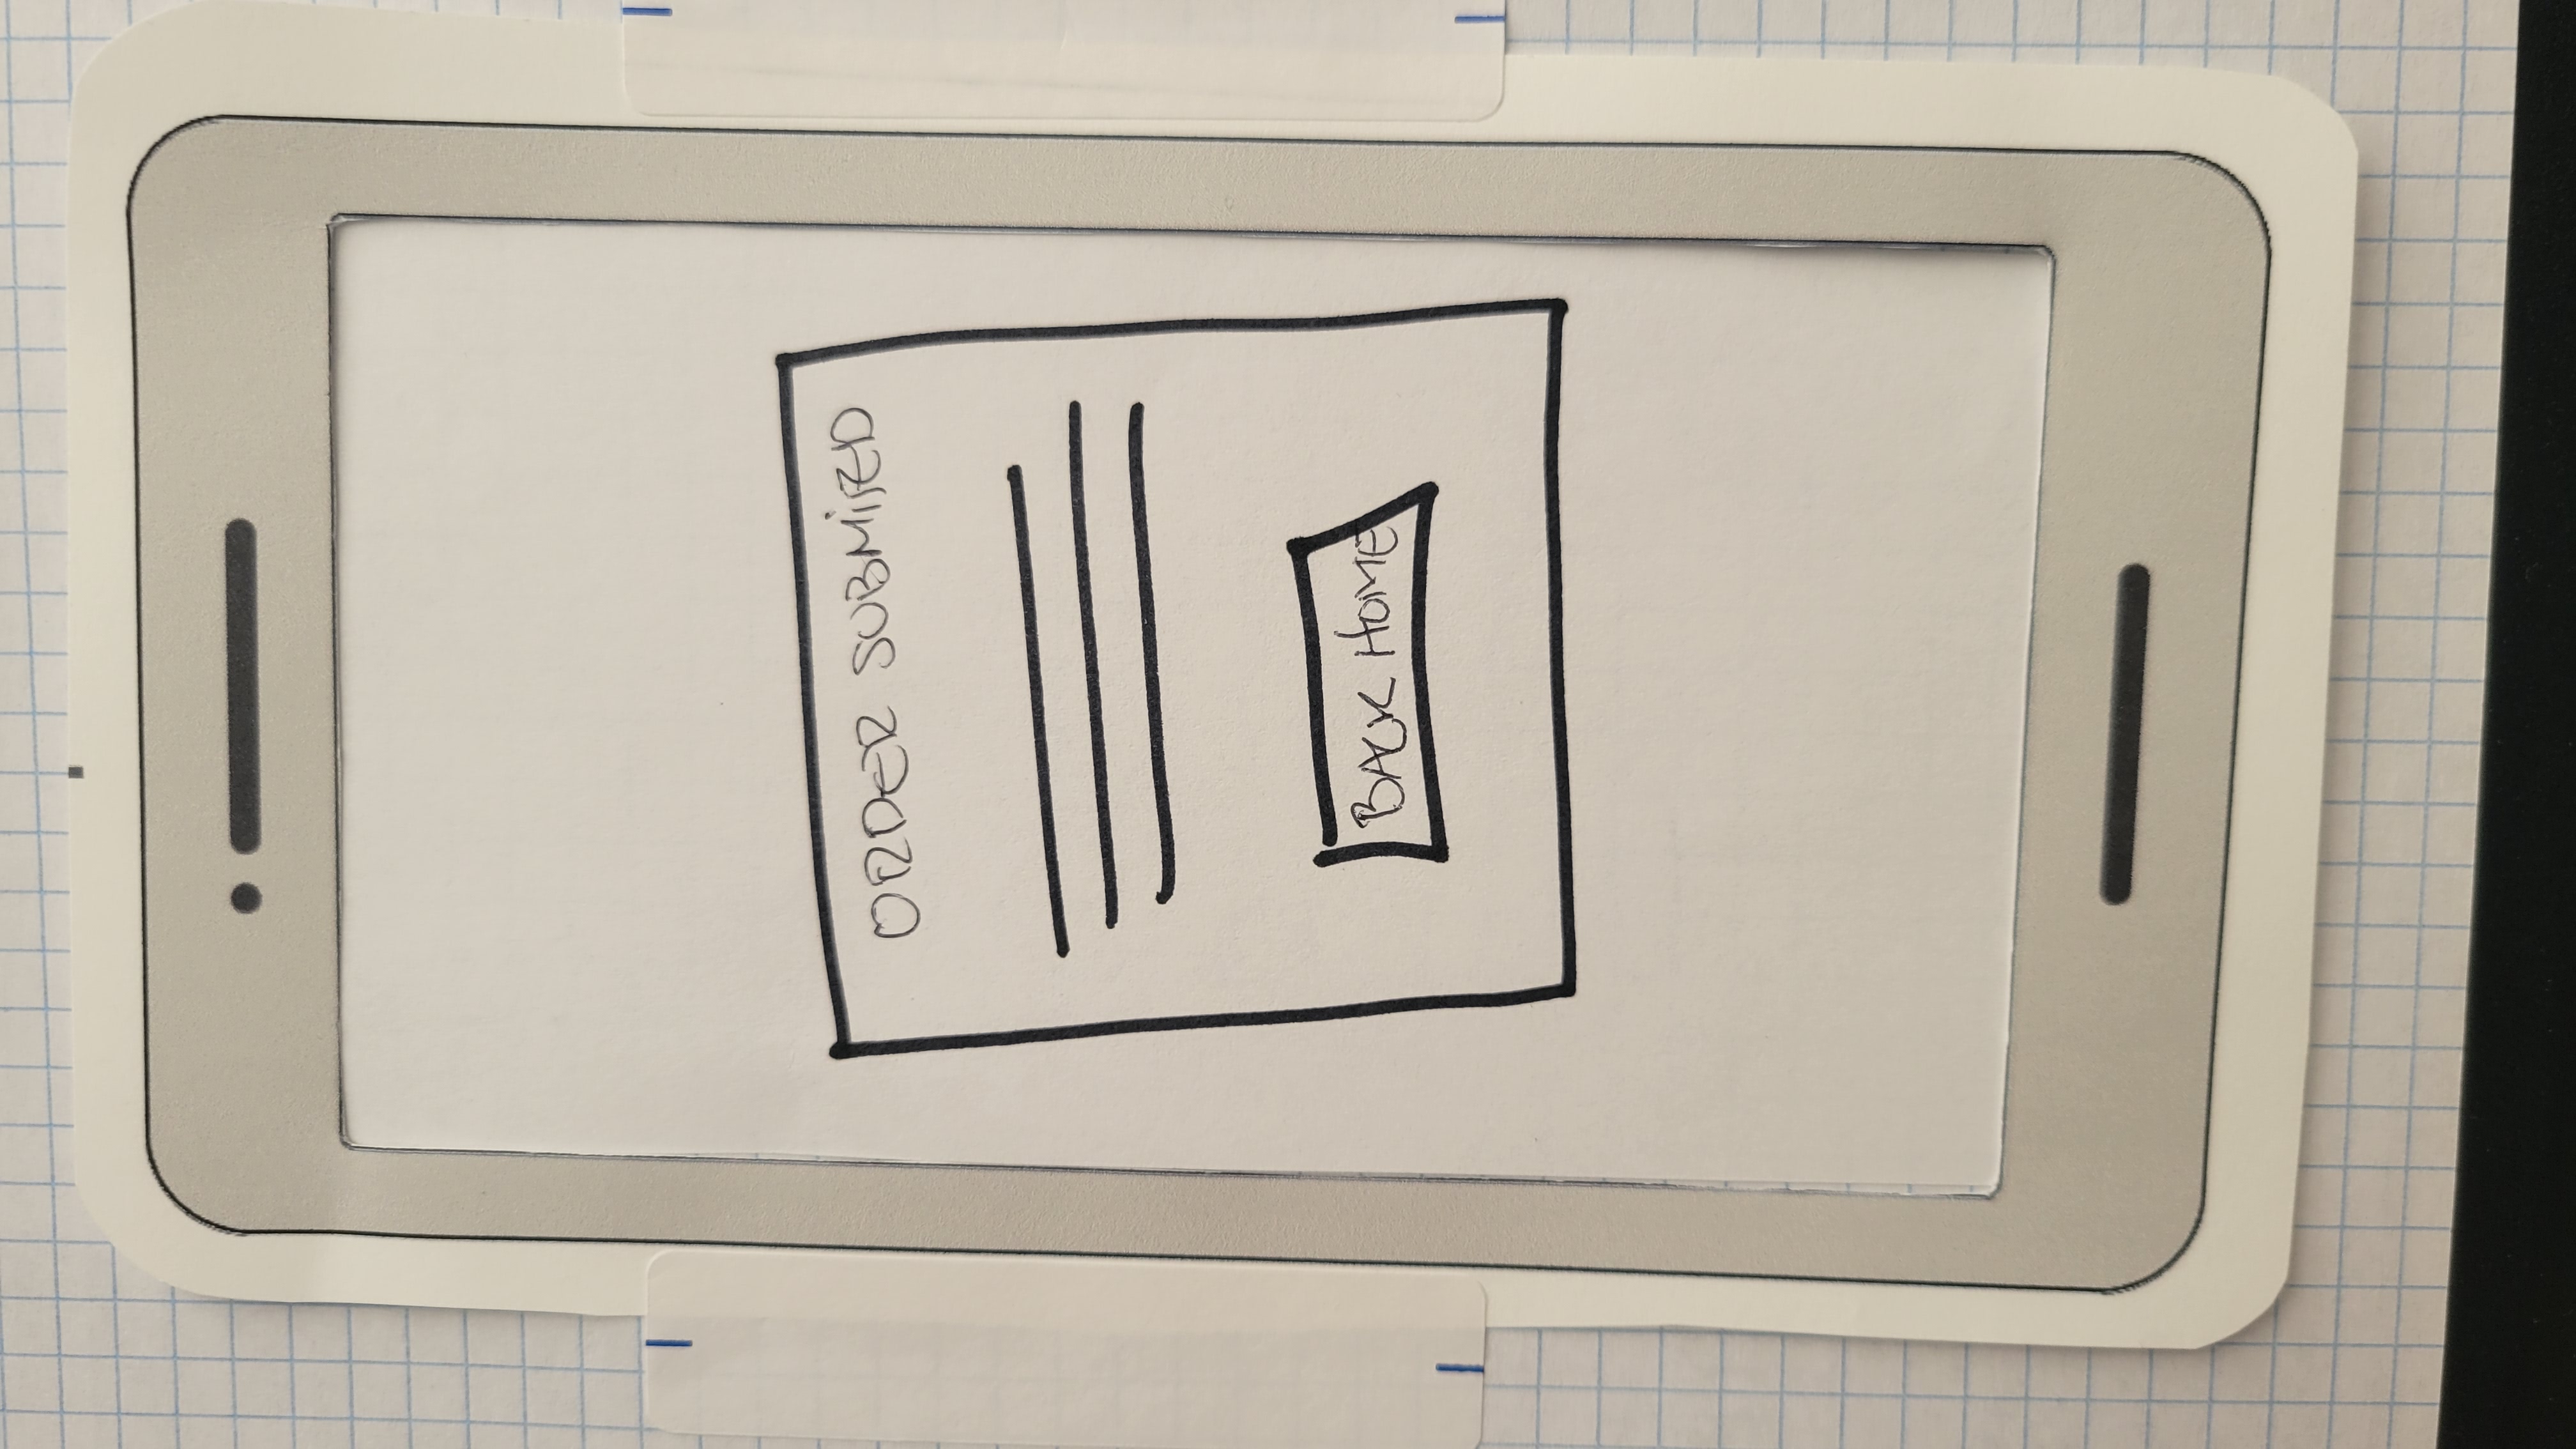 ORDER SUBMITED
BACK HOME